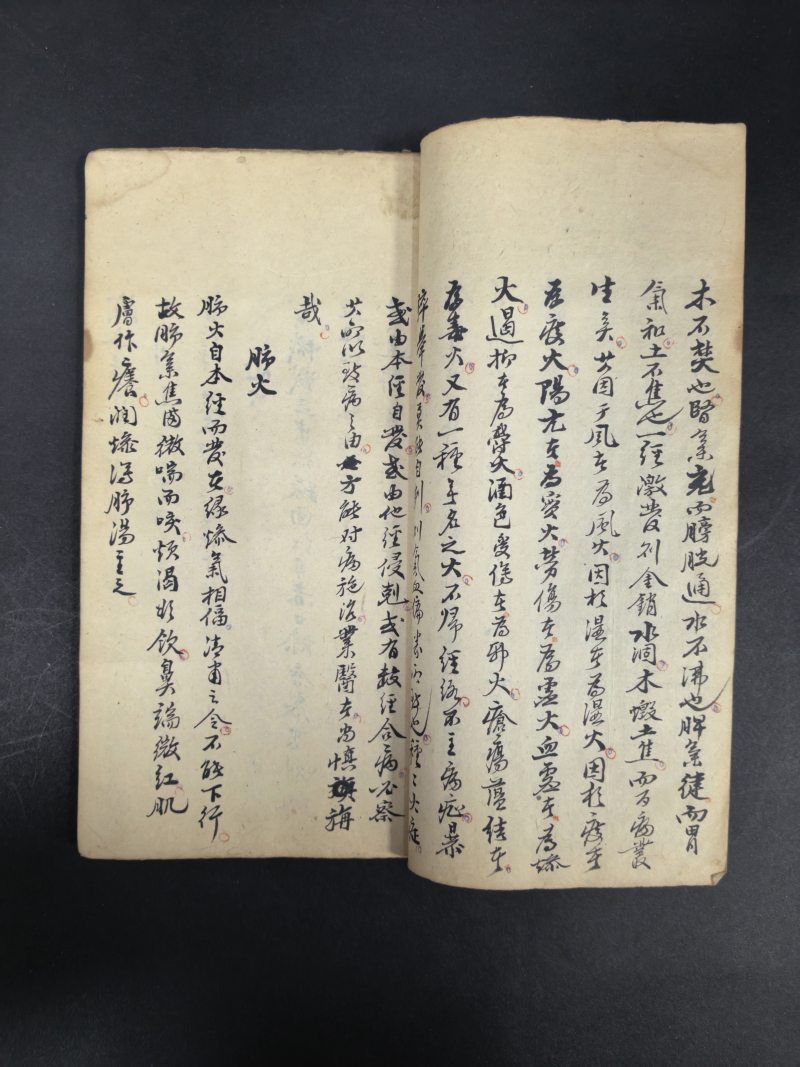 木不焚也腎气充而膀胱通水不沸也脾气健而胃
氣和土不焦也一經激發則金銷水涸木燬土焦而百病叢
生矣其因于風者为風火因於濕者为濕火因於痰者
为痰火陽亢者为爱火劳傷者为虛火血虛者为燥
火遏抑者为鬱火酒色受傷者为邪火瘡瘍蕴结者
为毒火又有一種無名之火不歸經絡不主病症暴
或由本經自發或由他經侵剋或有数經合病必察
其所以致病之由方能对病施治業醫者当慎旃
哉
肺火
肺火自本經而發者缘燥氣相偪清肃之令不能下行
故肺气焦滿微喘而咳烦渴欲飲鼻端微红肌
膚作癢潤燥瀉肺湯主之